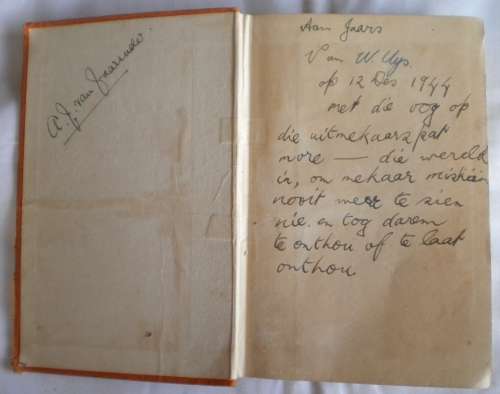 A. J. van
Aan Jaars
Van W. Uys
op 12 Des 1944
met die oog op
die uitmekaarspat
more — die wereld
in, om mekaar miskien
nooit meer te sien
nie. en tog darem
te onthou of te laat
onthou